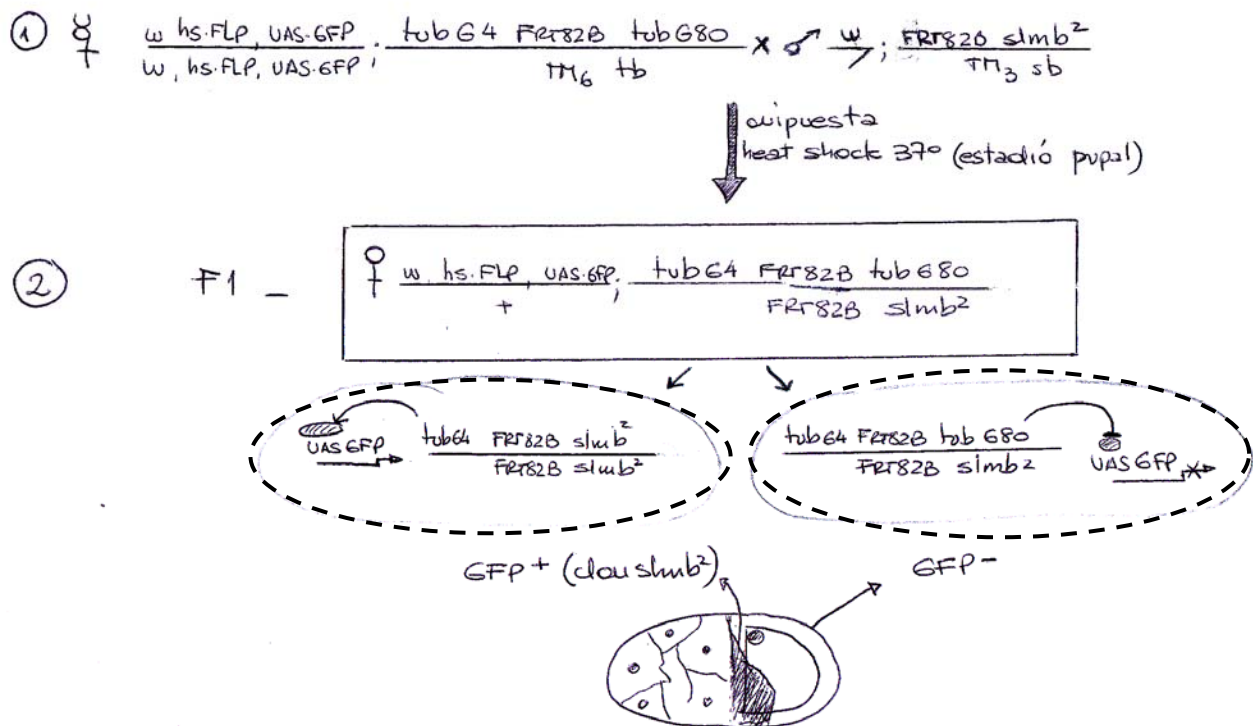 ① ♀ w hs.FLP, UAS.GFP / w, hs.FLP, UAS.GFP ; tub G4 FRT82B tub G80 / TM6 tb x ♂ w / Y ; FRT82B slmb² / TM3 sb
ovipuesta
heat shock 37º (estadió pupal)
② F1 - ♀ w, hs.FLP, UAS.GFP / + ; tub G4 FRT82B tub G80 / FRT82B slmb²
UAS GFP tub G4 FRT82B slmb² / FRT82B slmb²
tub G4 FRT82B tub G80 / FRT82B slmb2 UAS GFP
GFP+ (clon slmb²) GFP-